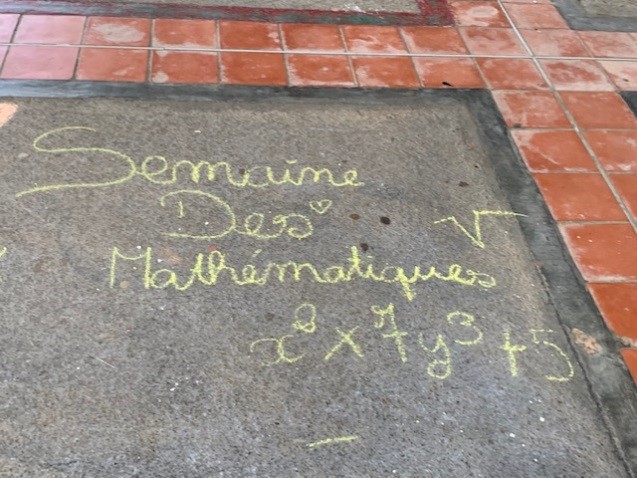 Semaine
Des
√
Mathématiques
x² × 7y³ + 5